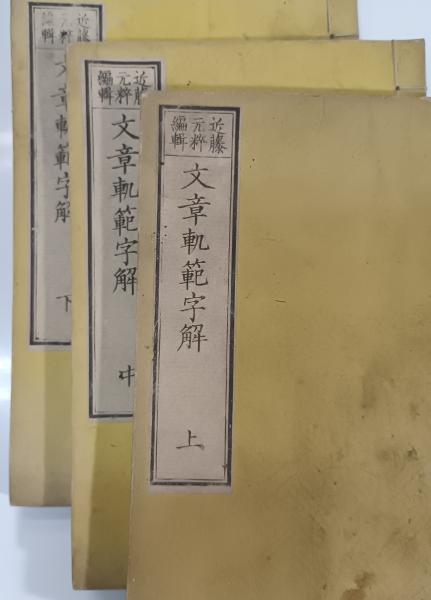 近藤
元粹
編輯
文章軌範字解
上
近藤
元粹
編輯
文章軌範字解
中
近藤
元粹
編輯
文章軌範字解
下